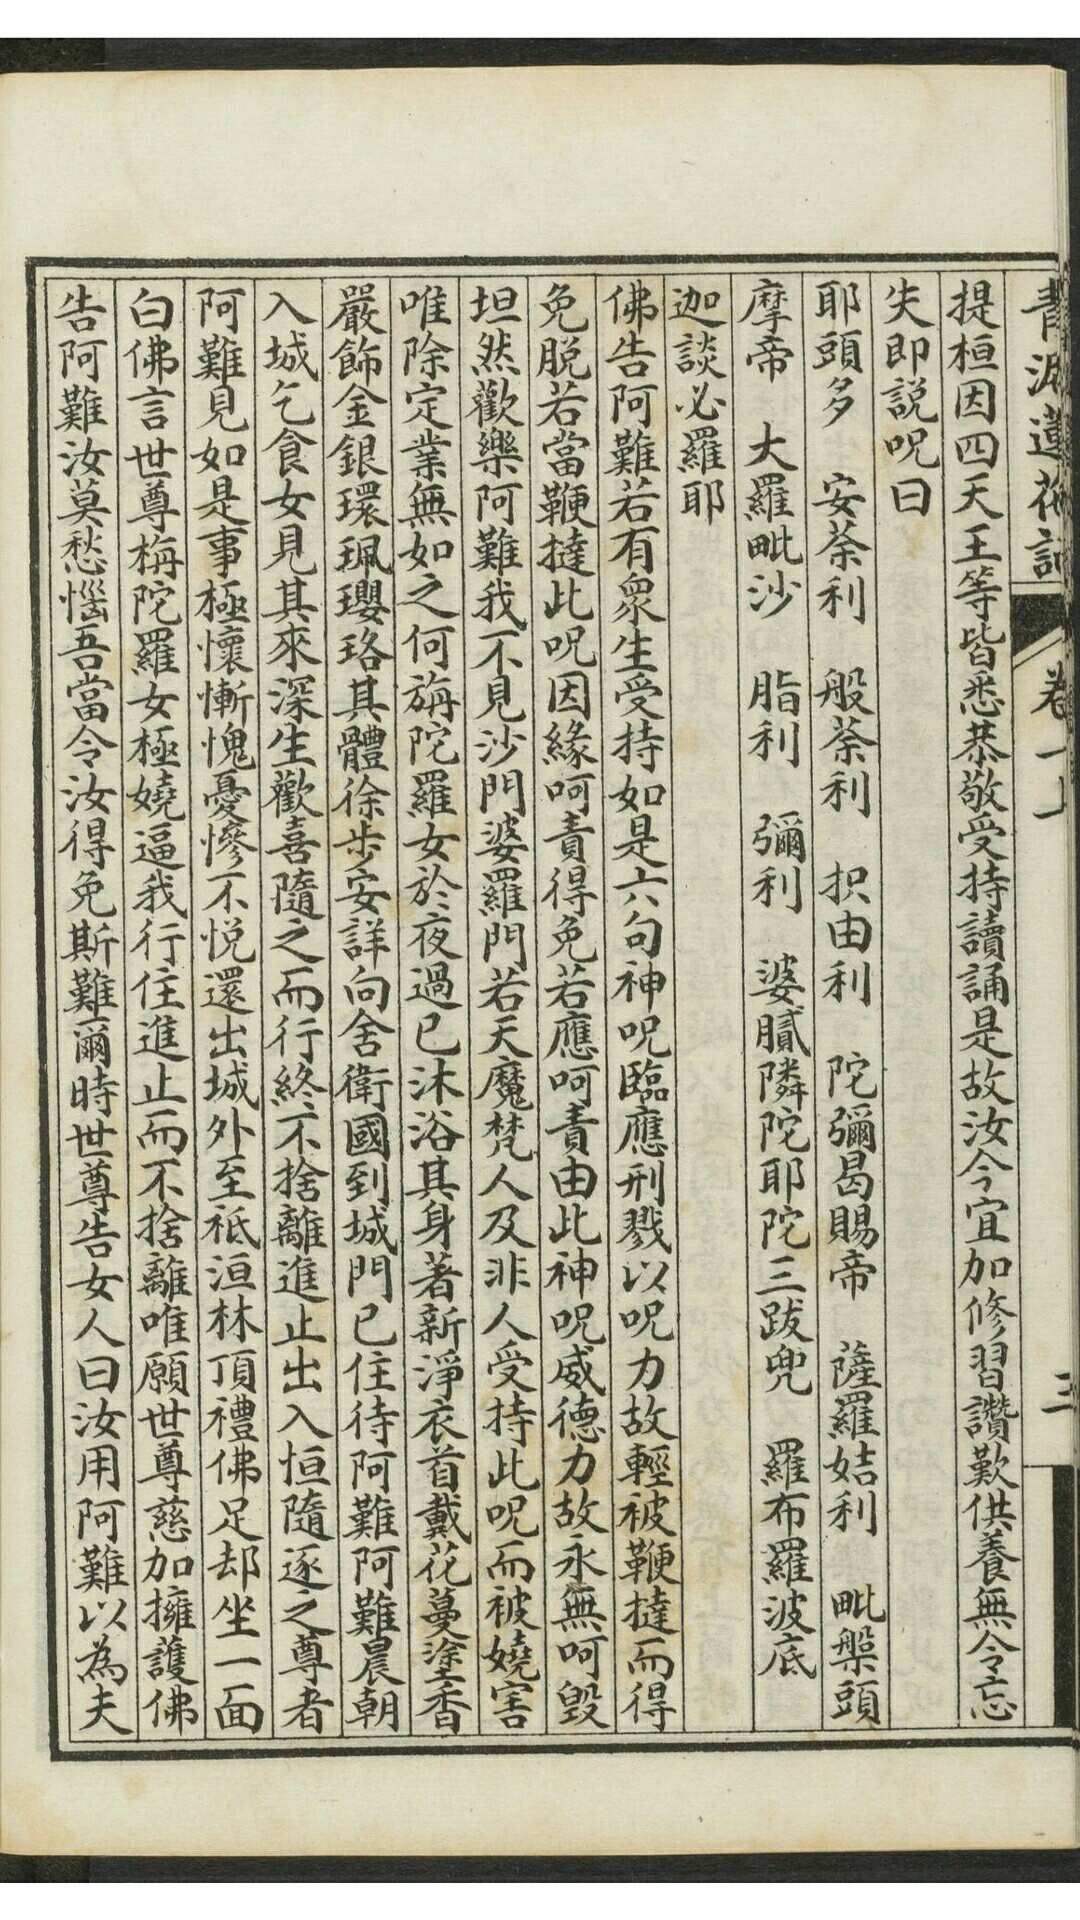 青泥蓮花記 卷一上 三
提桓因四天王等皆悉恭敬受持讀誦是故汝今宜加修習讚歎供養無令忘
失即説呪曰
耶頭多 安荼利 般荼利 抧由利 陀彌曷賜帝 薩羅姞利 毗槃頭
摩帝 大羅毗沙 脂利 彌利 婆膩隣陀耶陀三跋兜 羅布羅波底
迦談必羅耶
佛告阿難若有衆生受持如是六句神呪臨應刑戮以呪力故輕被鞭撻而得
免脱若當鞭撻此呪因緣呵責得免若應呵責由此神呪威德力故永無呵毀
坦然歡樂阿難我不見沙門婆羅門若天魔梵人及非人受持此呪而被嬈害
唯除定業無如之何旃陀羅女於夜過已沐浴其身著新淨衣首戴花蔓塗香
嚴飾金銀環珮瓔珞其體徐步安詳向舍衛國到城門已住待阿難阿難晨朝
入城乞食女見其來深生歡喜隨之而行終不捨離進止出入恒隨逐之尊者
阿難見如是事極懷慚愧憂慘不悦還出城外至祗洹林頂禮佛足却坐一面
白佛言世尊栴陀羅女極嬈逼我行住進止而不捨離唯願世尊慈加擁護佛
告阿難汝莫愁惱吾當令汝得免斯難爾時世尊告女人曰汝用阿難以為夫